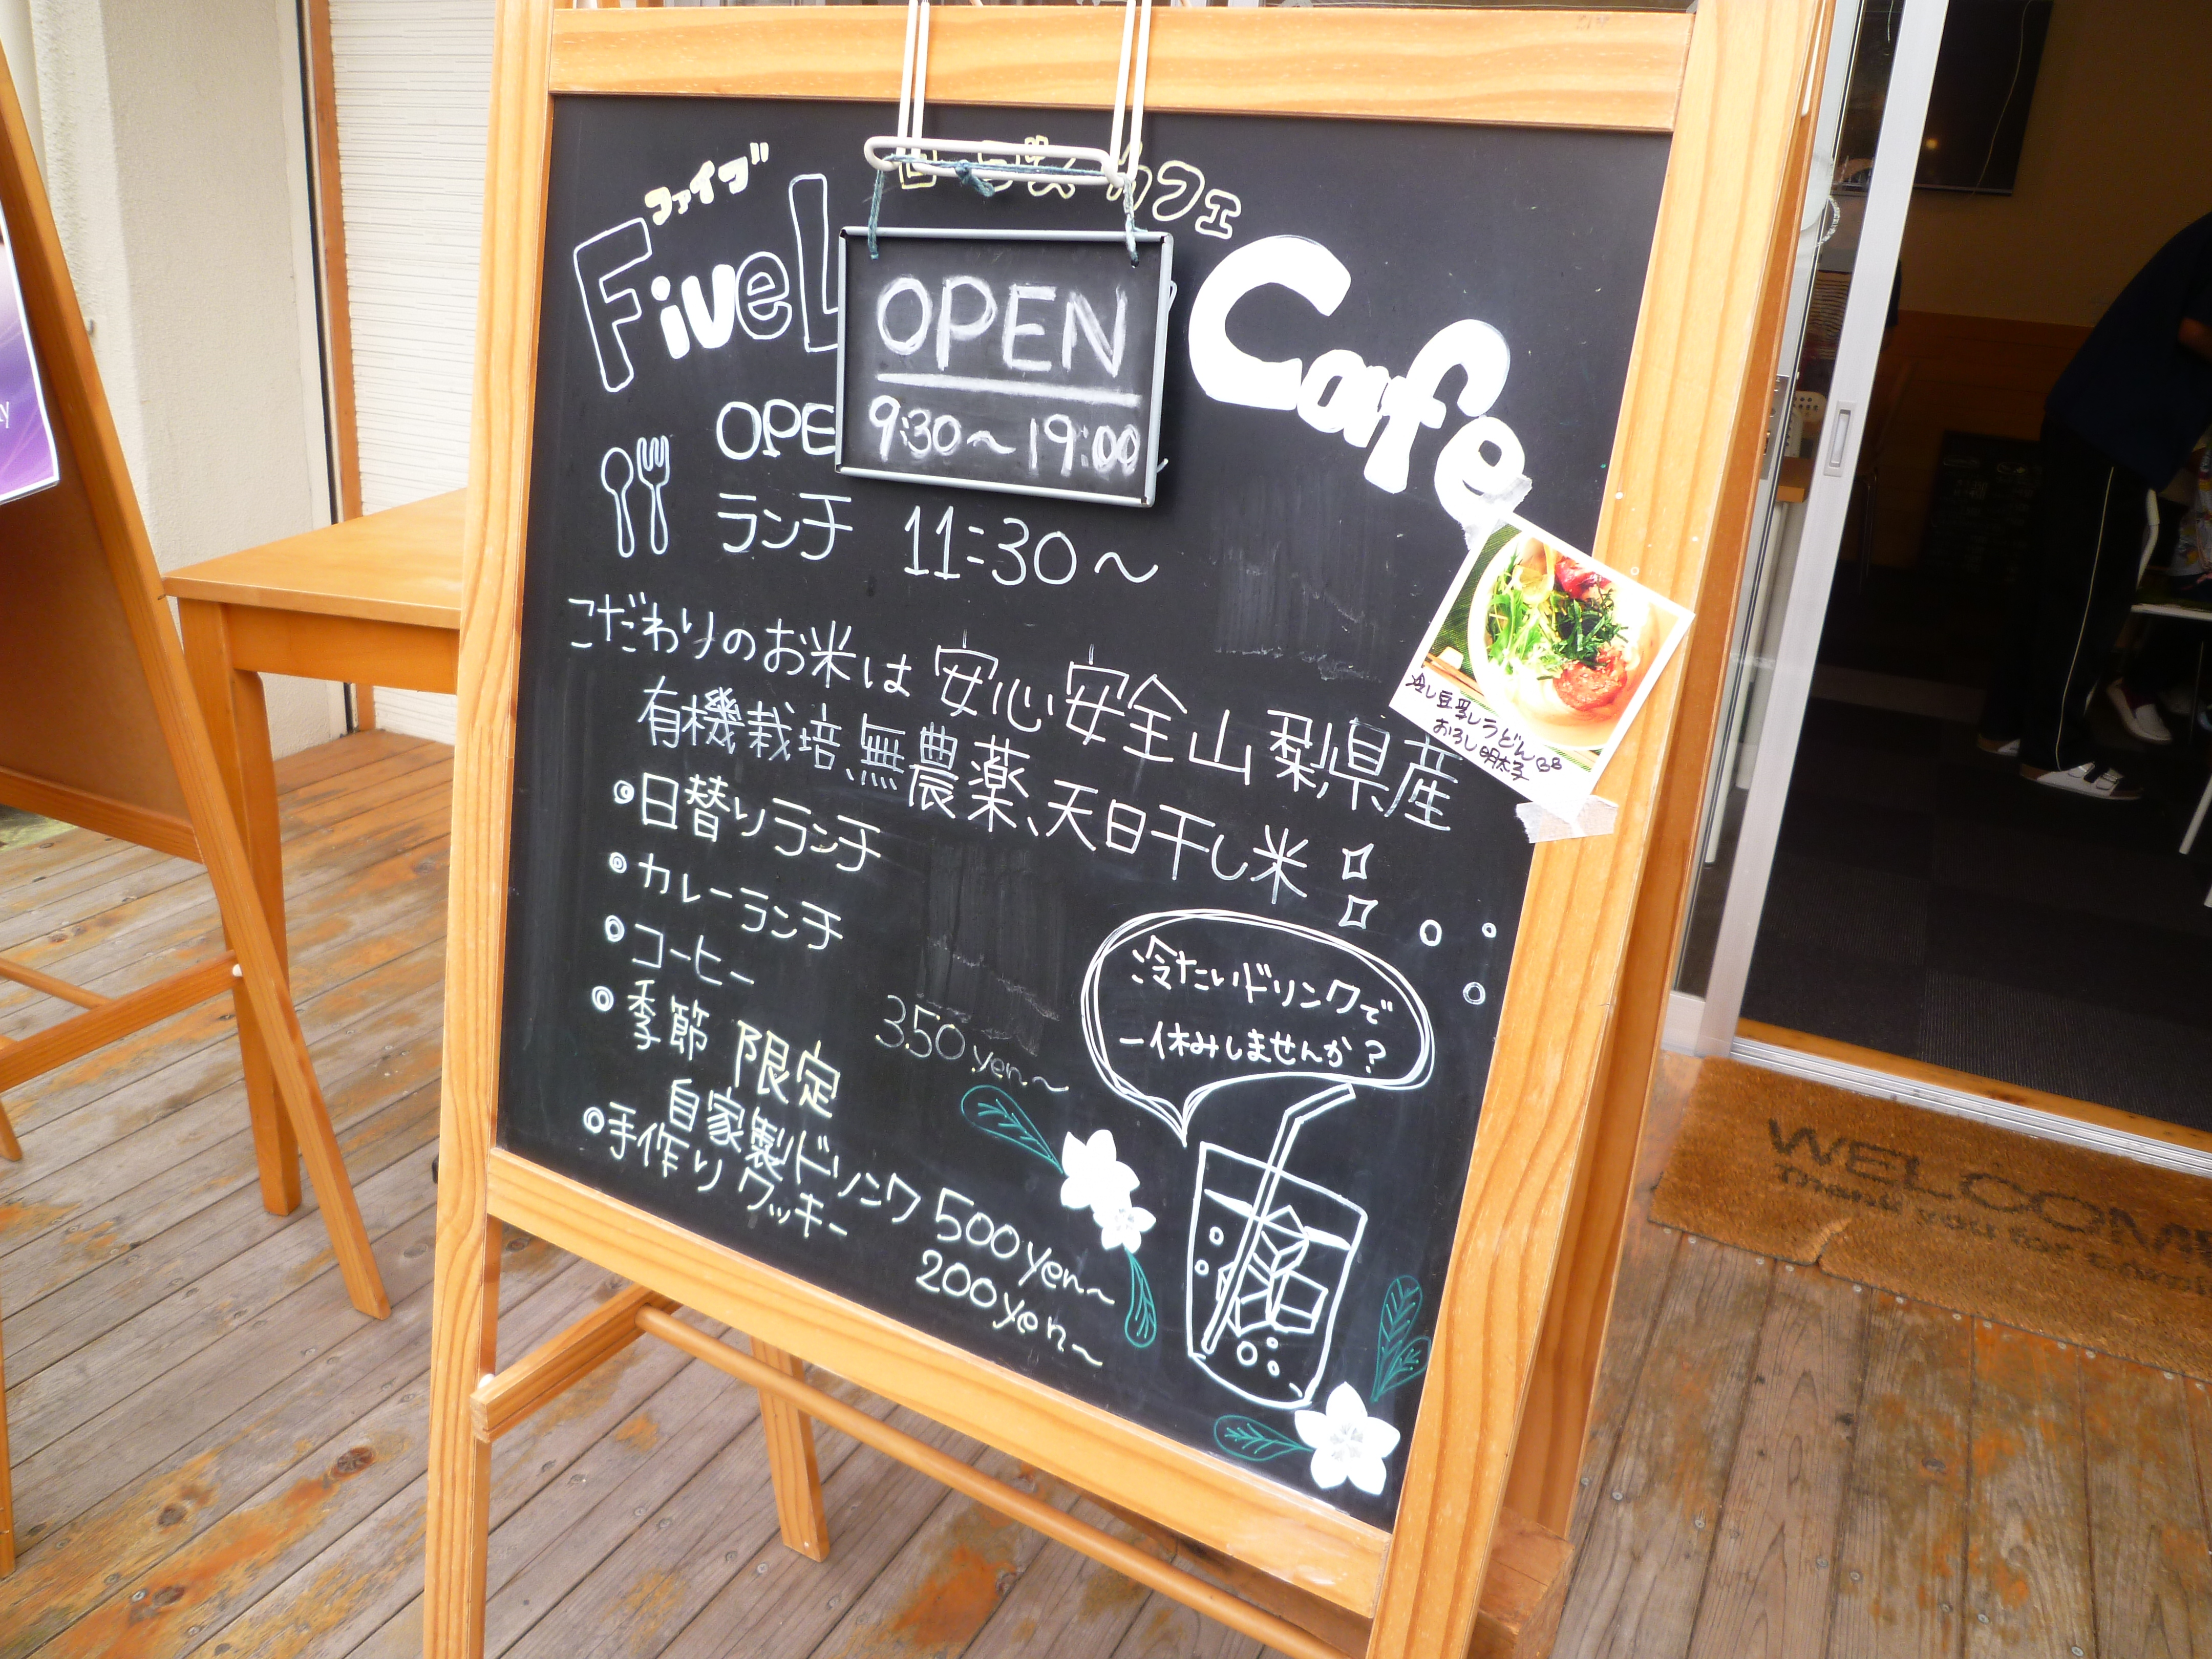 ファイブ
カフェ
Five
Cafe
OPEN
9:30～19:00
OPE
ランチ 11:30～
こだわりのお米は安心安全山梨県産
有機栽培、無農薬、天日干し米
◎日替りランチ
◎カレーランチ
◎コーヒー 350yen～
◎季節限定
自家製ドリンク 500yen～
◎手作りクッキー 200yen～
冷たいドリンクで
一休みしませんか？
冷し豆乳うどん
おろし明太子
WELCOME
Thank you for